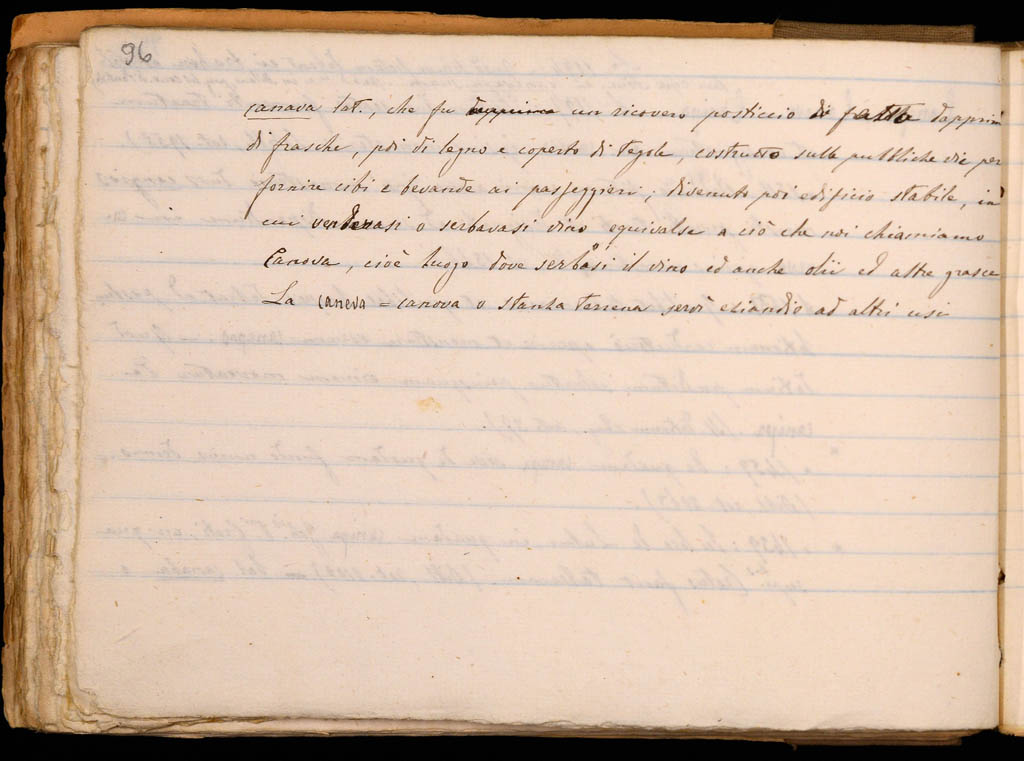 96
canava lat., che fu dapprima un ricovero posticcio di fatto dapprim
di frasche, poi di legno e coperto di tegole, costrutto sulle pubbliche vie per
fornire cibi e bevande ai passeggieri; divenuto poi edificio stabile, in
cui vendevasi o serbavasi vino equivalse a ciò che noi chiamiamo
Canova, cioè luogo dove serbasi il vino ed anche olii ed altre grasce
La caneva = canova o stanza terrena servì eziandio ad altri usi